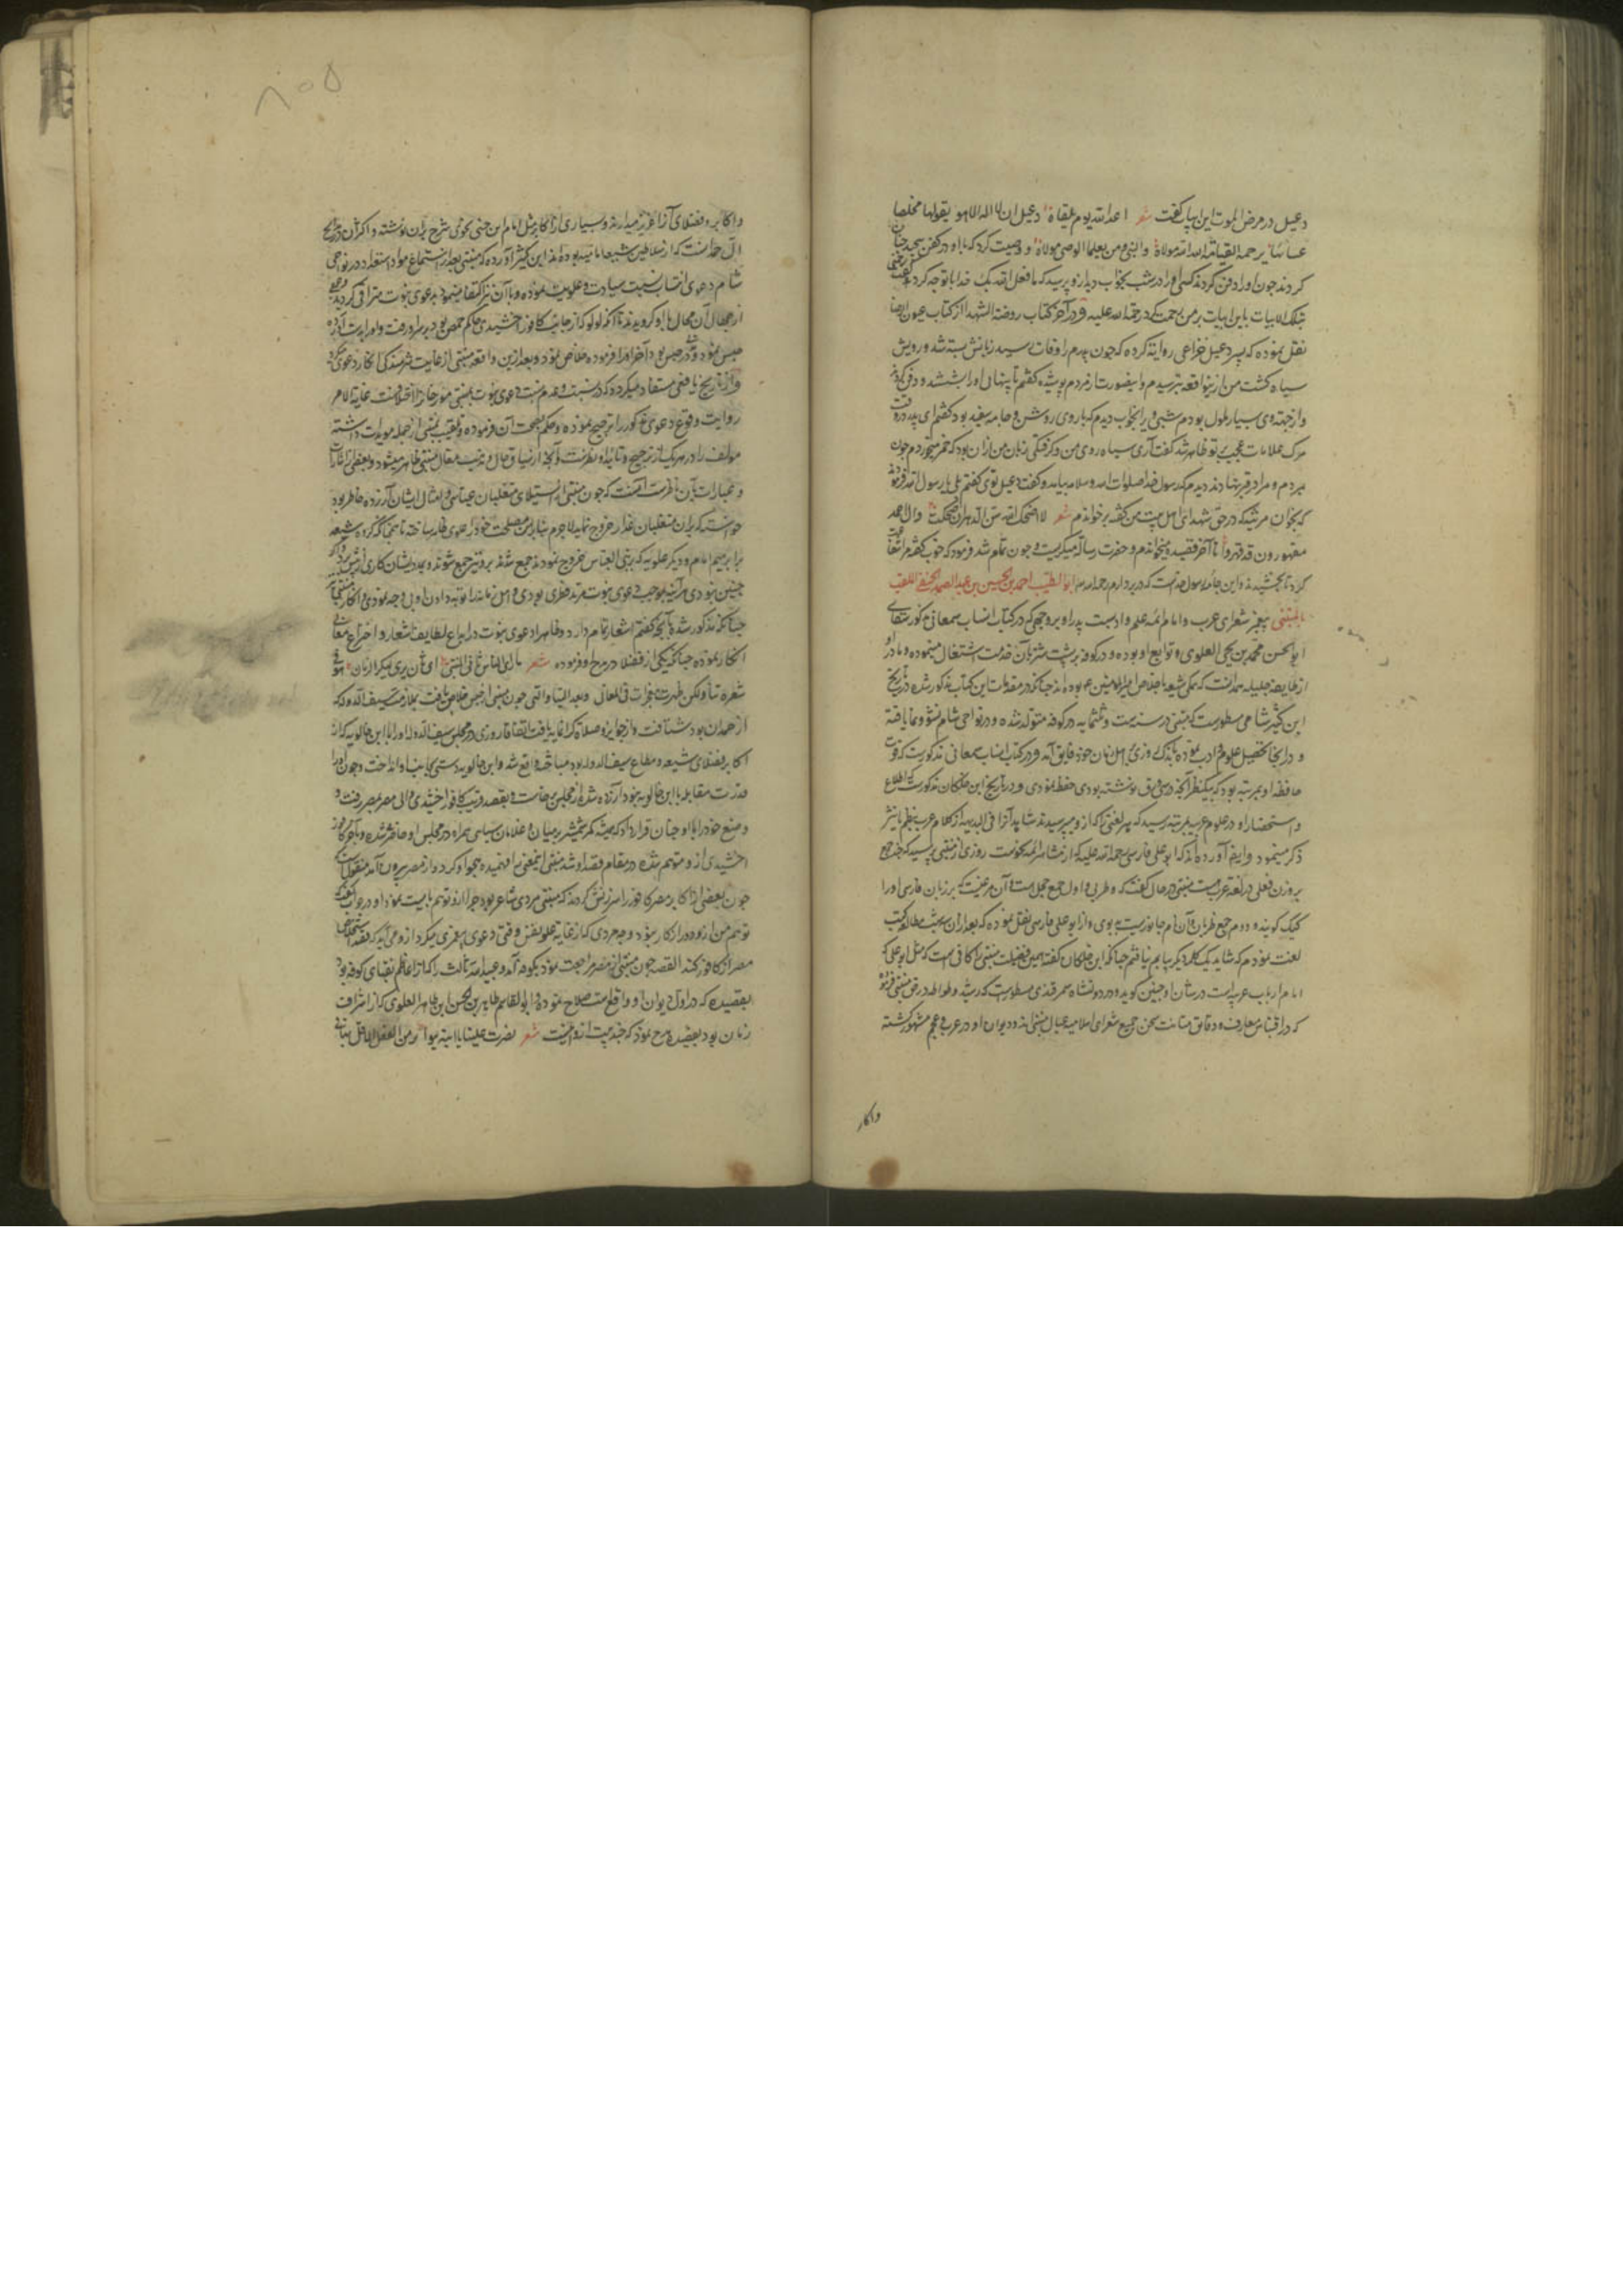 دعبل در مرض الموت این ابیات گفت شعر اعد الله یوم یلقاه دعبل ان لا اله الا هو یقولها مخلصا
عساه بها یرحمه القیامة الله الله مولاه والنبی ومن بعدهما الوصی مولاه و وصیت کرد که با او در کفن
کردند چون او را دفن کردند کسی او را در شب بخواب دید ازو پرسید که ما فعل الله بک خدا با تو چه کرد گفت
بتلک الابیات باین ابیات بر من رحمت کرد رحمة الله علیه و در آخر کتاب روضة الشهدا از کتاب عیون الرضا
نقل نموده که پسر دعبل خزاعی روایت کرده که چون پدرم را وفات رسید زبانش بسته شد و رویش
سیاه گشت من ازین واقعه بترسیدم و اینصورت از مردم پوشیده گفتم تا پنهانی او را بشستند و دفن کردند
و از جهة وی بسیار ملول بودم شبی ویرا بخواب دیدم که با روی روشن و جامه سفید بود گفتم ای پدر در وقت
مرک علامات عجیب بر تو ظاهر شد گفت آری سیاه روی من و گرفتگی زبان من از آن بود که خمر میخوردم چون
بمردم و مرا در قبر نهادند دیدم که رسول خدا صلوات الله و سلامه بیامد و گفت دعبل توی گفتم بلی یا رسول الله فرمود
که بخوان مرثیه که در حق شهدای اهل بیت من گفته برخواندم شعر لا اضحک الله سن الدهر ان ضحکت وآل احمد
مقهورون قد قهروا تا آخر قصیده میخواندم و حضرت رسالة میگریست و چون تمام شد فرمود که خوب گفته مرا شفاعت
کرد تا بخشیدند و این جامه رسول خداست که در بر دارم رحمه الله ابو الطیب احمد بن الحسین بن عبد الصمد الجعفی الملقب
بالمتنبی پیغمبر شعرای عرب و امام ائمه علم و ادبست پدر او بروجهی که در کتاب انساب سمعانی مذکورست سقای
ابو الحسن محمد بن یحیی العلوی و توابع او بوده و در کوفه بر پشت شتر بآن خدمت اشتغال مینموده و مادر او
از طایفه جلیله همدانست که همگی شیعه با اخلاص امیر المؤمنین ع بوده اند چنانکه در مقدمات این کتاب مذکور شده در تاریخ
ابن کثیر شامی مسطورست که متنبی در سنه ست و ثلثمایه در کوفه متولد شده و در نواحی شام نشو و نما یافته
و در آنجا تحصیل علوم ادب نموده
حافظه او بمرتبه بود که بیکنظر آنچه در سی ورق نوشته بودی حفظ نمودی و در تاریخ ابن خلکان مذکورست که اطلاع
و استحضار او در علوم عربیه بمرتبه رسید که هر لغتی را که ازو میپرسیدند شاهد آنرا فی البدیهه از کلام عرب بنظم یا نثر
ذکر مینمود و ایضا آورده اند که ابو علی فارسی رحمة الله علیه که از مشاهیر ائمه نحوست روزی از متنبی پرسید که چند جمع
بر وزن فعلی در لغة عربست متنبی در حال گفت که حجلی و ظربی اول جمع حجل است و آن مرغیست که بزبان فارسی او را
کبک گویند و دوم جمع ظربان و آن نام جانوریست بد بوی و از ابو علی فارسی نقل نموده که بعد از آن سه شب مطالعه کتب
لغت نمودم که شاید یک کلمه دیگر بیابم نیافتم چنانکه ابن خلکان گفته همین فضیلت متنبی را کافی است که مثل ابو علی که
امام ارباب عربیه است در شان او چنین گوید و در دولتشاه سمرقندی مسطورست که رشید وطواط در حق متنبی فرموده
که در اقتباس معارف و دقایق متانت سخن جمیع شعرای اسلامیه عیال متنبی اند و دیوان او در عرب و عجم مشهور گشته
واکابر
۸۰۵
واکابر و فضلای آنرا عزیز میدارند و بسیاری از اکابر مثل امام ابن جنی نحوی شرح بران نوشته و اکثر آن در مدح
آل حمدانست که از سلاطین شیعه امامیه بوده اند ابن کثیر آورده که متنبی بعد از استجماع مواد استعداد در نواحی
شام دعوی انتساب بنسبت سیادت و علویت نموده و بآن نیز اکتفا ننموده بدعوی نبوت مترقی گردید و جمعی
از جهال آن محال باو گرویدند تا آنکه لولو که از جانب کافور اخشیدی حاکم حمص بود بر سر او رفت و او را بدست آورده
حبس نمود و مدتی در حبس بود آخر او را توبه فرموده خلاص نمود و بعد ازین واقعه متنبی از غایت شرمندگی انکار دعوی میکرد
و از تاریخ یافعی مستفاد میگردد که در نسبت و عدم نسبت دعوی نبوت بمتنبی مورخان را اختلافست غایة الامر
روایت وقوع دعوی مذکور را ترجیح نموده و حکم بصحت آن فرموده و تلقیب بمتنبی از جمله مویدات داشته
مولف را در هر یک از ترجیح و تائید او نظرست و آنچه از سیاق حال و ترتیب مقال متنبی ظاهر میشود و بعضی از اشارات
و عبارات بآن ناظرست آنست که چون متنبی از استیلای متغلبان عباسی و امثال ایشان آزرده خاطر بود
خواسته که بران متغلبان غدار خروج نماید لاجرم بنابر این مصلحت خود را علوی ظاهر ساخته تا همچنانکه گروه شیعه
برابرهیم امام و دیگر علویه که بر بنی العباس خروج نمودند جمع شدند برو نیز جمع شوند و بمدد ایشان کاری از پیش برد و اگر
چنین نبودی هرآینه بموجب دعوی نبوت مرتد فطری بودی و اهل زمانه را توبه دادن او بی وجه نمودی و انکار متنبی
چنانکه مذکور شد با آنچه گفتم اشعار تمام دارد و ظاهرا دعوی نبوت در ابداع لطایف اشعار و اختراع معانی
انکار نموده چنانکه یکی از فضلا در مدح او فرموده شعر ما رای الناس ثانی المتنبی ای ثان یری لبکر الزمان هو فی
شعره نبی ولکن ظهرت معجزاته فی المعانی وبعد اللتیا و التی چون متنبی از حبس خلاص یافت بملازمت سیف الدوله که
از همدان بود شتافت و از جوایز و صلات گرانمایه یافت اتفاقا روزی در مجلس سیف الدوله او را با ابن خالویه که از
اکابر فضلای شیعه و مطاع سیف الدوله بود مباحثه واقع شد و ابن خالویه دستی بجانب او انداخت و چون او را
قدرت مقابله با ابن خالویه نبود آزرده شد و از مجلس برخاست و بقصد تربیت کافور اخشیدی والی مصر بمصر رفت و
وضع خود را با او چنان قرار داد که همیشه کمر شمشیر بر میان و غلامان سپاهی همراه در مجلس او حاضر میشد و بآخر کافور
اخشیدی ازو متوهم شده در مقام قصد او شد متنبی اینمعنی را فهمیده هجو او کرد و از مصر بیرون آمد منقولست که
چون بعضی از اکابر مصر کافور را سرزنش کردند که متنبی مردی شاعر بود چرا ازو توهم بایست نمود او در جواب گفت که
توهم من ازو دور از کار نبود و چه مردی که از غایة علو نفس وقتی دعوی پیغمبری میکرد ازو می آید که قصد
مصر از کافور کند القصه چون متنبی از مصر مراجعت نمود بکوفه آمد و عبید الله ثالث را که از اعاظم نقبای کوفه بود
بقصیده که در اول دیوان او واقع است مدح نموده و ابو القاسم طاهر بن الحسن ابن طاهر العلوی که از اشراف
زمان بود بقصیده مدح نموده که چند بیت ازو اینست شعر نصرت علینا یا ابنه بواتر من الفعل لا فل